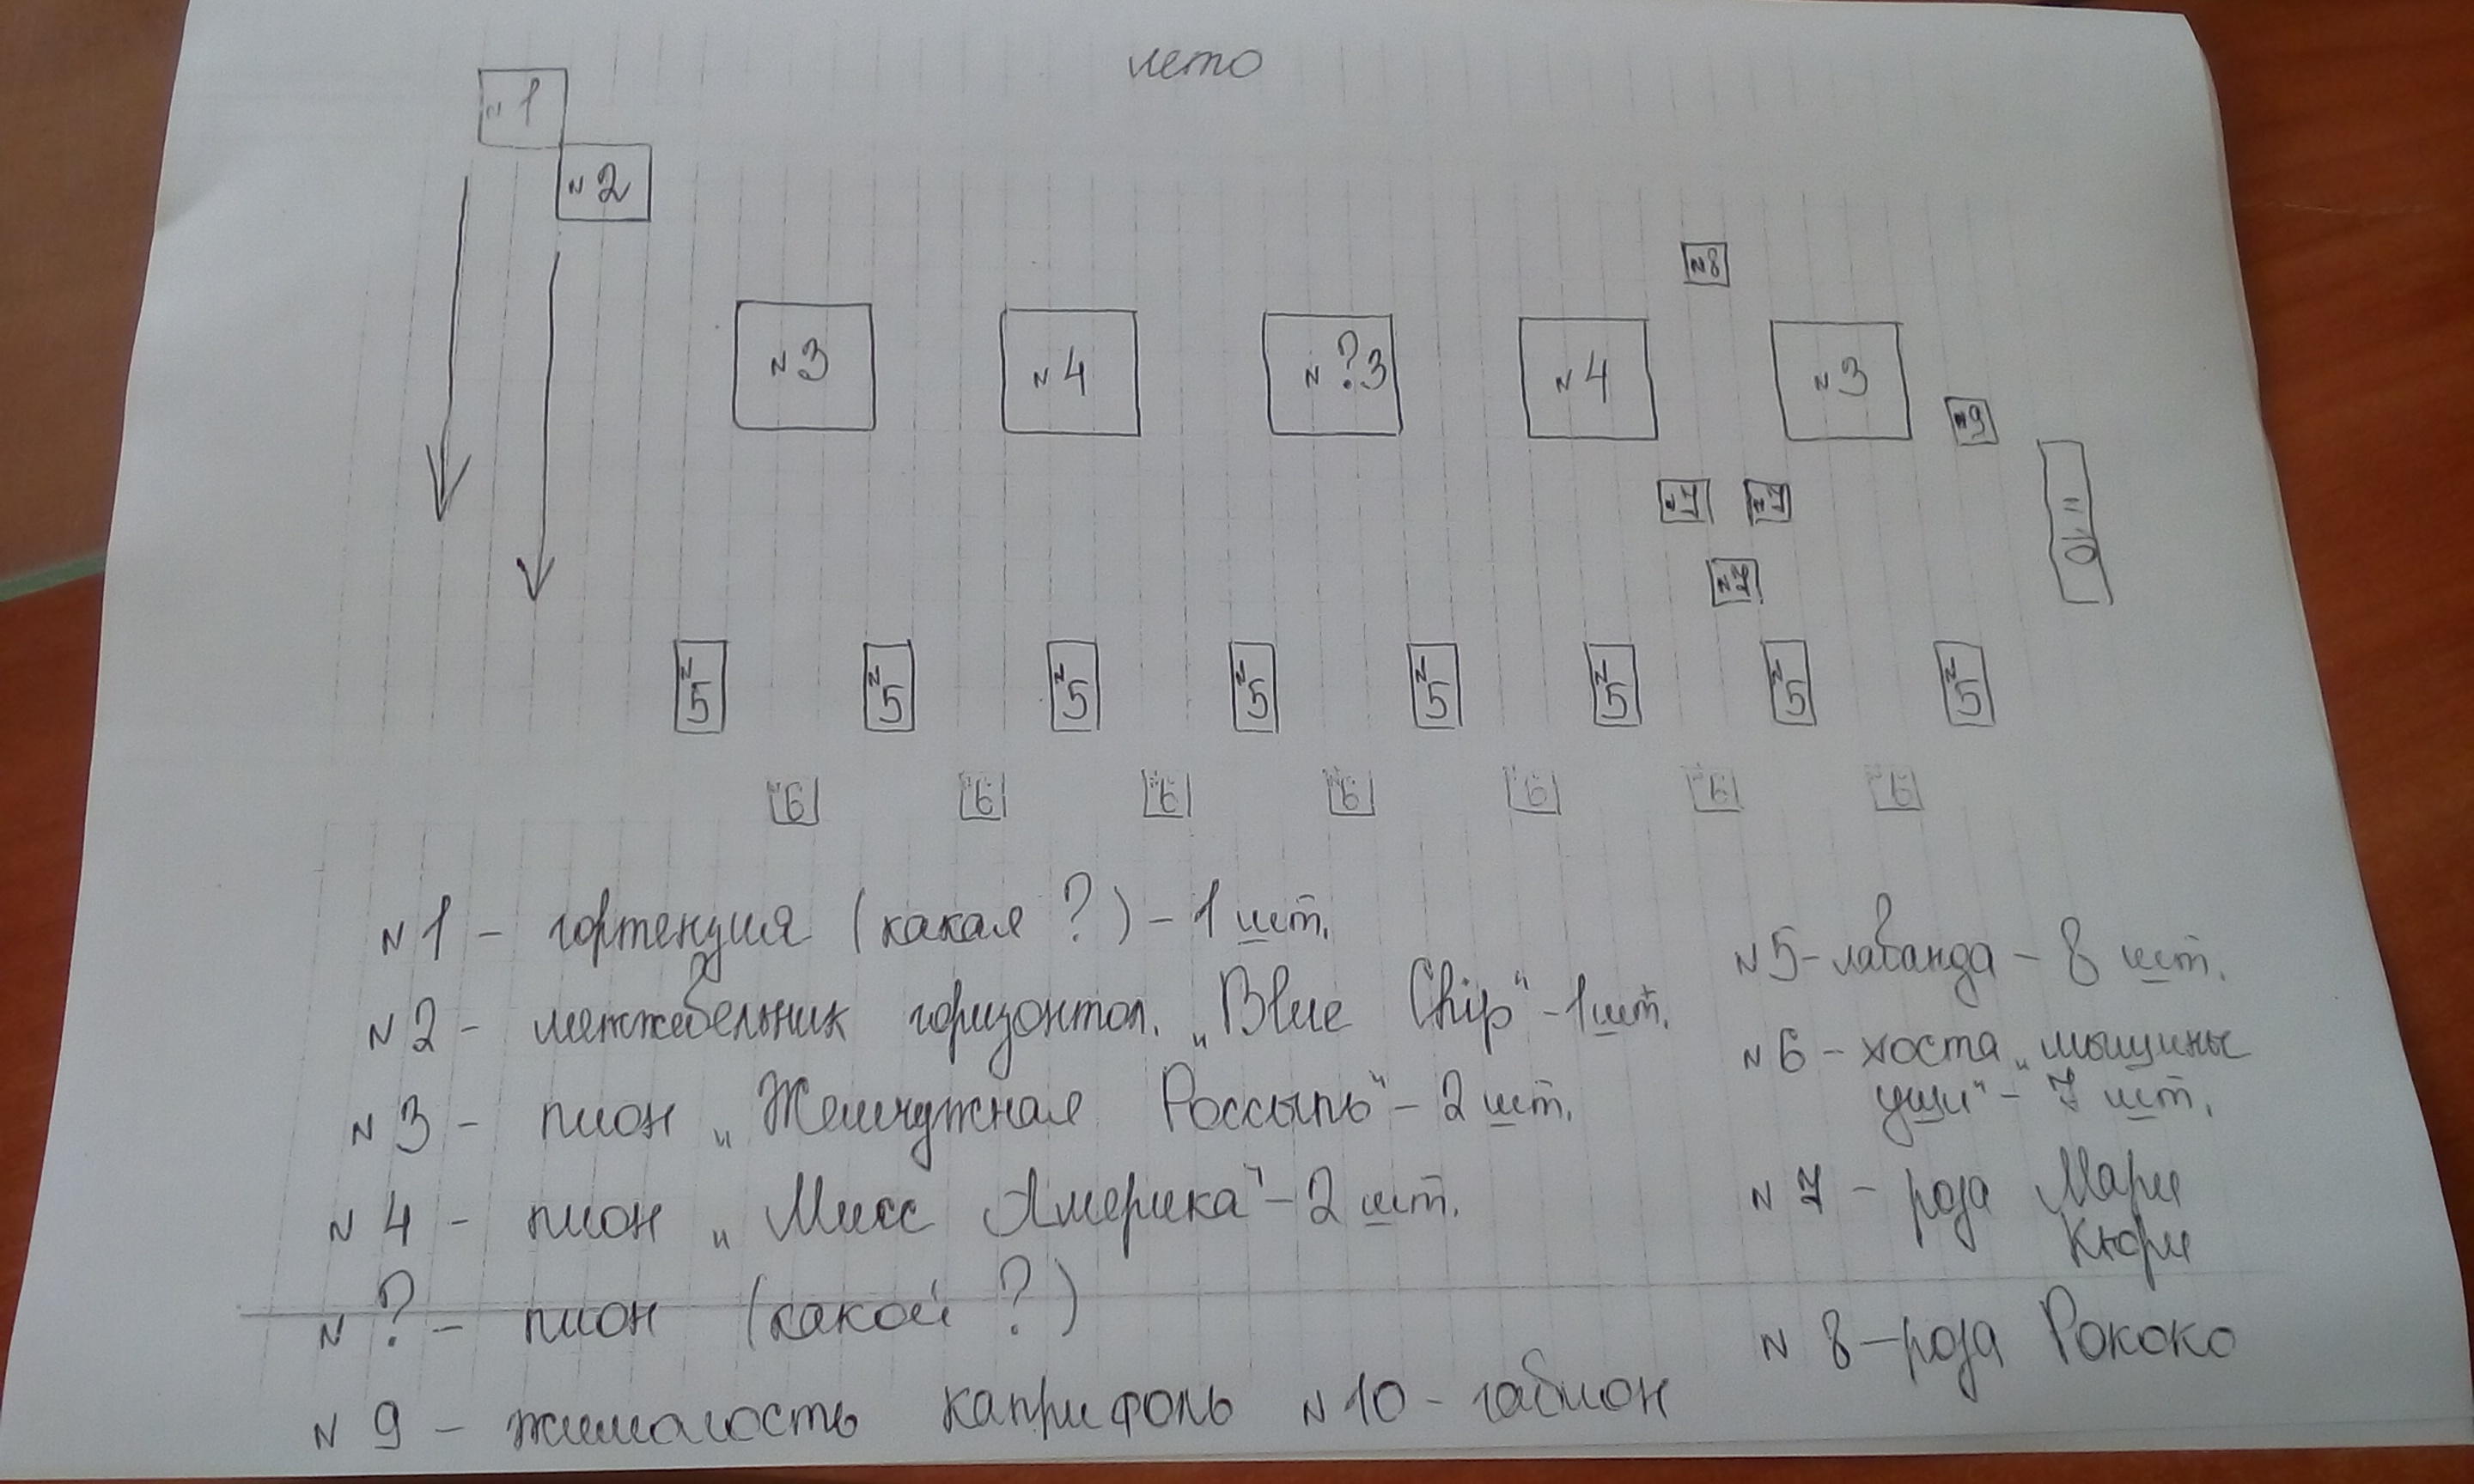 лето
№1
№2
№8
№3
№4
№?3
№4
№3
№9
№7
№7
10
№7
№5
№5
№5
№5
№5
№5
№5
№5
№6
№6
№6
№6
№6
№6
№6
№1 - гортензия (какая ?) - 1 шт.
№2 - можжевельник горизонтал. „Blue Chip" - 1 шт.
№3 - пион „Жемчужная Россыпь" - 2 шт.
№4 - пион „Мисс Америка" - 2 шт.
№? - пион (какой ?)
№9 - жимолость каприфоль №10 - габион
№5 - лаванда - 8 шт.
№6 - хоста „мышиные
ушки" - 7 шт.
№7 - роза Мари
Кюри
№8 - роза Рококо